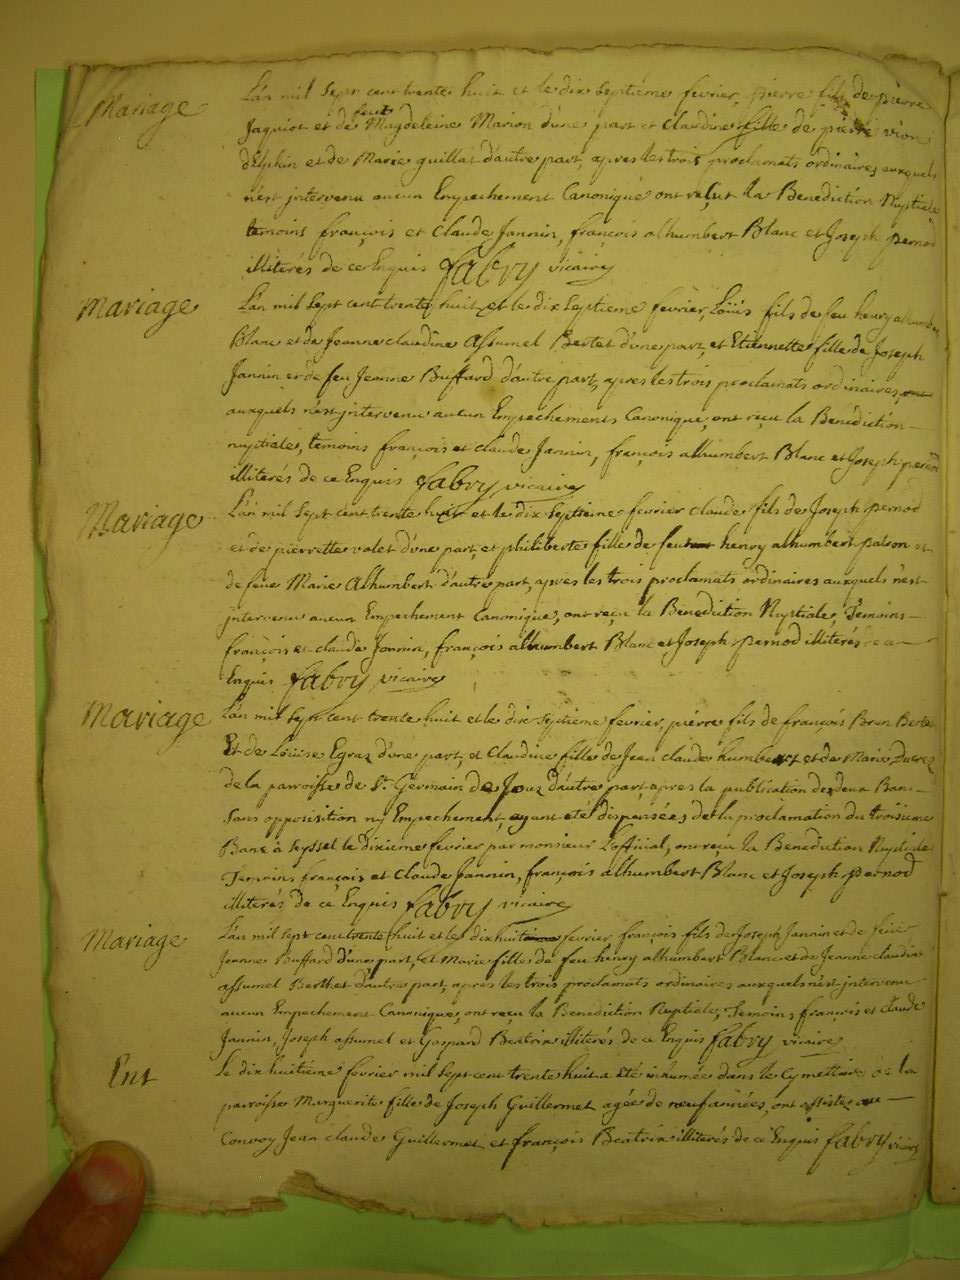 Mariage
L'an mil sept cent trente huit et le dix septiéme fevrier, pierre fils de pierre
Jaquiot et de feue Magdeleine Marion d'une part et Claudine fille de pierre vion
delphin et de Marie guillat d'autre part, apres les trois proclamats ordinaires auxquels
n'est intervenu aucun Empechement Canonique ont reçut la Benediction Nuptiale
temoins françois et Claude Jannin, françois alhumbert Blanc et Joseph pernod
illiterés de ce Enquis fabry vicaire
Mariage
L'an mil sept cent trente huit et le dix septieme fevrier, Loüis fils de feu henry alhumbert
Blanc et de Jeanne claudine Assumel Bertet d'une part, et Etiennette fille de Joseph
Jannin et de feu Jeanne Buffard d'autre part, apres les trois proclamats ordinaires, ont
auxquels n'est intervenu aucun Empechements Canonique, ont reçu la Benediction
nuptiale, temoins françois et claude Jannin, françois alhumbert Blanc et Joseph pernod
illiterés de ce Enquis fabry vicaire
Mariage
L'an mil sept cent trente huit et le dix septieme fevrier claude fils de Joseph pernod
et de pierrette valet d'une part, et philiberte fille de feu henry alhumbert patron et
de feue Marie Alhumbert d'autre part, apres les trois proclamats ordinaires auxquels n'est
intervenu aucun Empechement Canonique, ont reçu la Benediction Nuptiale, Temoins
françois et claude Jannin, françois alhumbert Blanc et Joseph pernod illiterés de ce
Enquis fabry vicaire
Mariage
L'an mil sept cent trente huit et le dix septiéme fevrier, piérre fils de françois Brun Berte
Et de Loüise Egraz d'une part, et Claudine fille de Jean claude humbert et de Marie Ducrez
de la parroisse de St. Germain de Joux d'autre part, apres la publication des deux Bans
sans opposition ny Empechement, ayant eté dispensées de la proclamation du troisieme
Banc à seyssel le dixieme fevrier par monsieur l'official, ont reçu la Benediction Nuptiale
Temoins françois et Claude Jannin, françois alhumbert Blanc et Joseph pernod
illiterés de ce Enquis fabry vicaire
Mariage
L'an mil sept cent trente huit et le dixhuit fevrier françois fils de Joseph Jannin et de feüe
Jeanne Buffard d'une part, et Marie fille de feu henry alhumbert Blanc et de Jeanne claudine
assumel Berthet d'autre part, apres les trois proclamats ordinaires auxquels n'est intervenu
aucun Empechement Canonique, ont reçu la Benediction Nuptiale, Temoins françois et claude
Jannin, Joseph assumel et Gaspard Beatrix illiterés de ce Enquis fabry vicaire
Ent
Le dix huitiéme fevrier mil sept cent trente huit a eté inhumée dans le Cymettiere de la
parroisse Marguerite fille de Joseph Guillermet agée de neuf années, ont assistez au
Convoy Jean claude Guillermet et françois Beatrix illiterés de ce Enquis fabry vicaire